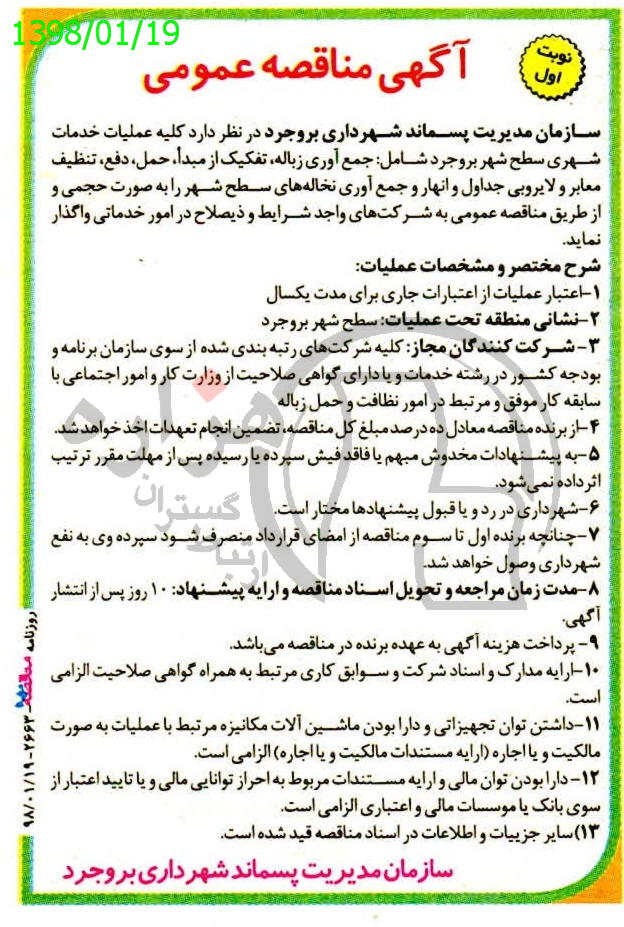 1398/01/19
نوبت
اول
آگهی مناقصه عمومی
سازمان مدیریت پسماند شهرداری بروجرد در نظر دارد کلیه عملیات خدمات
شهری سطح شهر بروجرد شامل: جمع آوری زباله، تفکیک از مبدأ، حمل، دفع، تنظیف
معابر و لایروبی جداول و انهار و جمع آوری نخاله‌های سطح شهر را به صورت حجمی و
از طریق مناقصه عمومی به شرکت‌های واجد شرایط و ذیصلاح در امور خدماتی واگذار
نماید.
شرح مختصر و مشخصات عملیات:
۱-اعتبار عملیات از اعتبارات جاری برای مدت یکسال
۲-نشانی منطقه تحت عملیات: سطح شهر بروجرد
۳- شرکت کنندگان مجاز: کلیه شرکت‌های رتبه بندی شده از سوی سازمان برنامه و
بودجه کشور در رشته خدمات و یا دارای گواهی صلاحیت از وزارت کار و امور اجتماعی با
سابقه کار موفق و مرتبط در امور نظافت و حمل زباله
۴-از برنده مناقصه معادل ده درصد مبلغ کل مناقصه، تضمین انجام تعهدات اخذ خواهد شد.
۵-به پیشنهادات مخدوش مبهم یا فاقد فیش سپرده یا رسیده پس از مهلت مقرر ترتیب
اثر داده نمی‌شود.
۶-شهرداری در رد و یا قبول پیشنهادها مختار است.
۷-چنانچه برنده اول تا سوم مناقصه از امضای قرارداد منصرف شود سپرده وی به نفع
شهرداری وصول خواهد شد.
۸-مدت زمان مراجعه و تحویل اسناد مناقصه و ارایه پیشنهاد: ۱۰ روز پس از انتشار
آگهی.
۹- پرداخت هزینه آگهی به عهده برنده در مناقصه می‌باشد.
۱۰-ارایه مدارک و اسناد شرکت و سوابق کاری مرتبط به همراه گواهی صلاحیت الزامی
است.
۱۱-داشتن توان تجهیزاتی و دارا بودن ماشین آلات مکانیزه مرتبط با عملیات به صورت
مالکیت و یا اجاره (ارایه مستندات مالکیت و یا اجاره) الزامی است.
۱۲- دارا بودن توان مالی و ارایه مستندات مربوط به احراز توانایی مالی و یا تایید اعتبار از
سوی بانک یا موسسات مالی و اعتباری الزامی است.
۱۳)سایر جزییات و اطلاعات در اسناد مناقصه قید شده است.
سازمان مدیریت پسماند شهرداری بروجرد
روزنامه مناقصه ۲۶۶۳-۹۸/۰۱/۱۹
هزاره
گستران
ارتباط